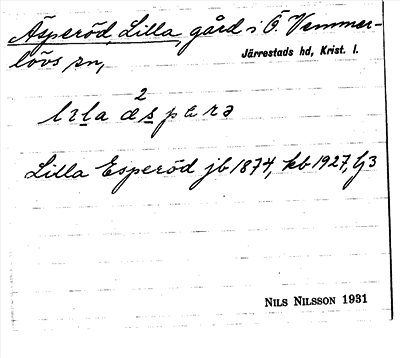 Äsperöd, Lilla, gård i Ö. Vemmer-
lövs sn,
Järrestads hd, Krist. l.
Lilla Esperöd jb 1874, kb 1927,
NILS NILSSON 1931